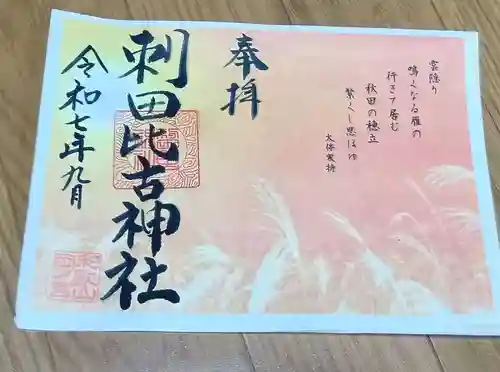 雲隠り
鳴くなる雁の
行きて居む
秋田の穂立
繁くし思ほゆ
大伴家持
奉拝
刺田比古神社
令和七年九月